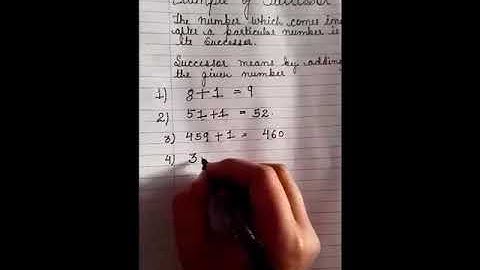 Example of Successor
The number which comes
after a particular number is
its Successor.
Successor means by adding
the given number
1) 8+1 = 9
2) 51+1 = 52
3) 459+1 = 460
4) 3